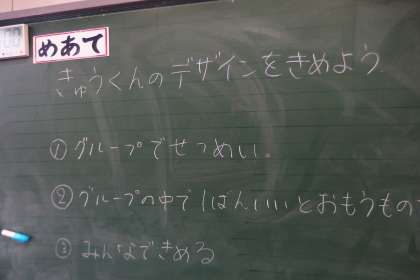 めあて
きゅうくんのデザインをきめよう
① グループでせつめい。
② グループの中で1ばんいいとおもうもの
③ みんなできめる